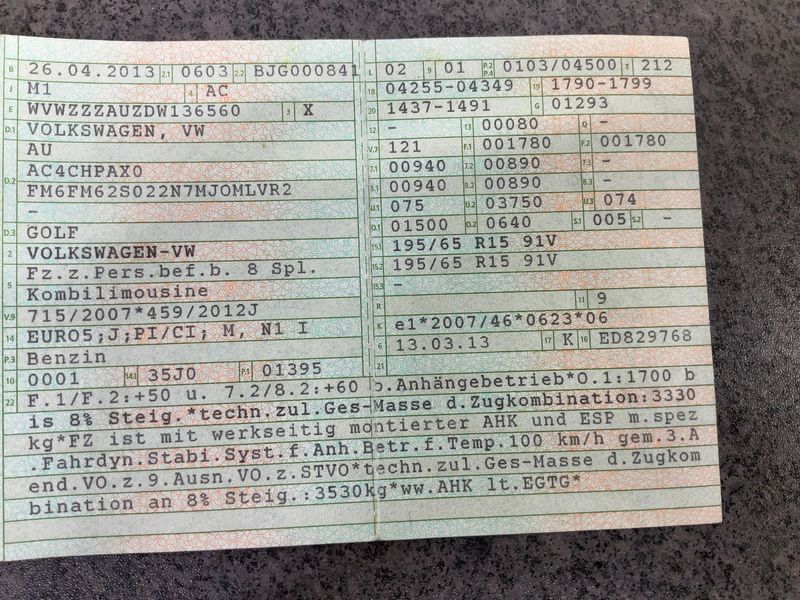 B 26.04.2013 2.1 0603 2.2 BJG000841
J M1 4 AC
E WVWZZZAUZDW136560 3 X
D.1 VOLKSWAGEN, VW
AU
D.2 AC4CHPAX0
FM6FM62S022N7MJOMLVR2
-
D.3 GOLF
2 VOLKSWAGEN-VW
5 Fz.z.Pers.bef.b. 8 Spl.
Kombilimousine
V.9 715/2007*459/2012J
14 EURO5;J;PI/CI; M, N1 I
P.3 Benzin
10 0001 14.1 35J0 P.1 01395
L 02 9 01 P.2 P.4 0103/04500 T 212
18 04255-04349 19 1790-1799
20 1437-1491 G 01293
12 - 13 00080 Q -
V.7 121 F.1 001780 F.2 001780
7.1 00940 7.2 00890 7.3 -
8.1 00940 8.2 00890 8.3 -
U.1 075 U.2 03750 U.3 074
O.1 01500 O.2 0640 S.1 005 S.2 -
15.1 195/65 R15 91V
15.2 195/65 R15 91V
15.3 -
R 11 9
K e1*2007/46*0623*06
6 13.03.13 17 K 16 ED829768
21
22 F.1/F.2:+50 u. 7.2/8.2:+60 b.Anhängebetrieb*O.1:1700 b
is 8% Steig.*techn.zul.Ges-Masse d.Zugkombination:3330
kg*FZ ist mit werkseitig montierter AHK und ESP m.spez
.Fahrdyn.Stabi.Syst.f.Anh.Betr.f.Temp.100 km/h gem.3.A
end.VO.z.9.Ausn.VO.z.STVO*techn.zul.Ges-Masse d.Zugkom
bination an 8% Steig.:3530kg*ww.AHK lt.EGTG*